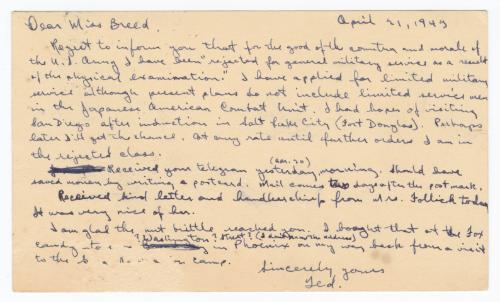 Dear Miss Breed. April 21, 1943
Regret to inform you that for the good of the country and morale of
the U.S. Army I have been "rejected for general military service as a result
of the physical examination." I have applied for limited military
service although present plans do not include limited service men
in the Japanese American Combat Unit. I had hopes of visiting
San Diego after induction in Salt Lake City (Fort Douglas). Perhaps
later I'll get the chance. At any rate until further orders I am in
the rejected class.
Received your telegram yesterday, (Apr. 20) morning. Should have
saved money by writing a postcard. Mail comes two days after the postmark.
Received kind letter and handkerchief from Mrs. Follick today
It was very nice of her.
I am glad the nut brittle reached you. I bought that at the Fox
candy store on ? Washington? Street? in Phoenix on my way back from a visit
to the camp.
Sincerely yours
Ted.